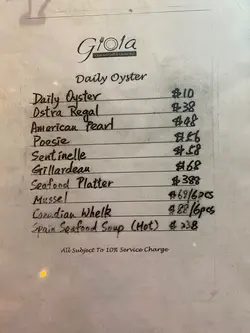 Gioia
Daily Oyster
Daily Oyster $10
Ostra Regal $38
American Pearl $48
Poesie $56
Sentinelle $58
Grillardeau $68
Seafood Platter $388
Mussel $69/6pcs
Canadian Whelk $88/6pcs
Spain Seafood Soup (Hot) $238
All Subject To 10% Service Charge